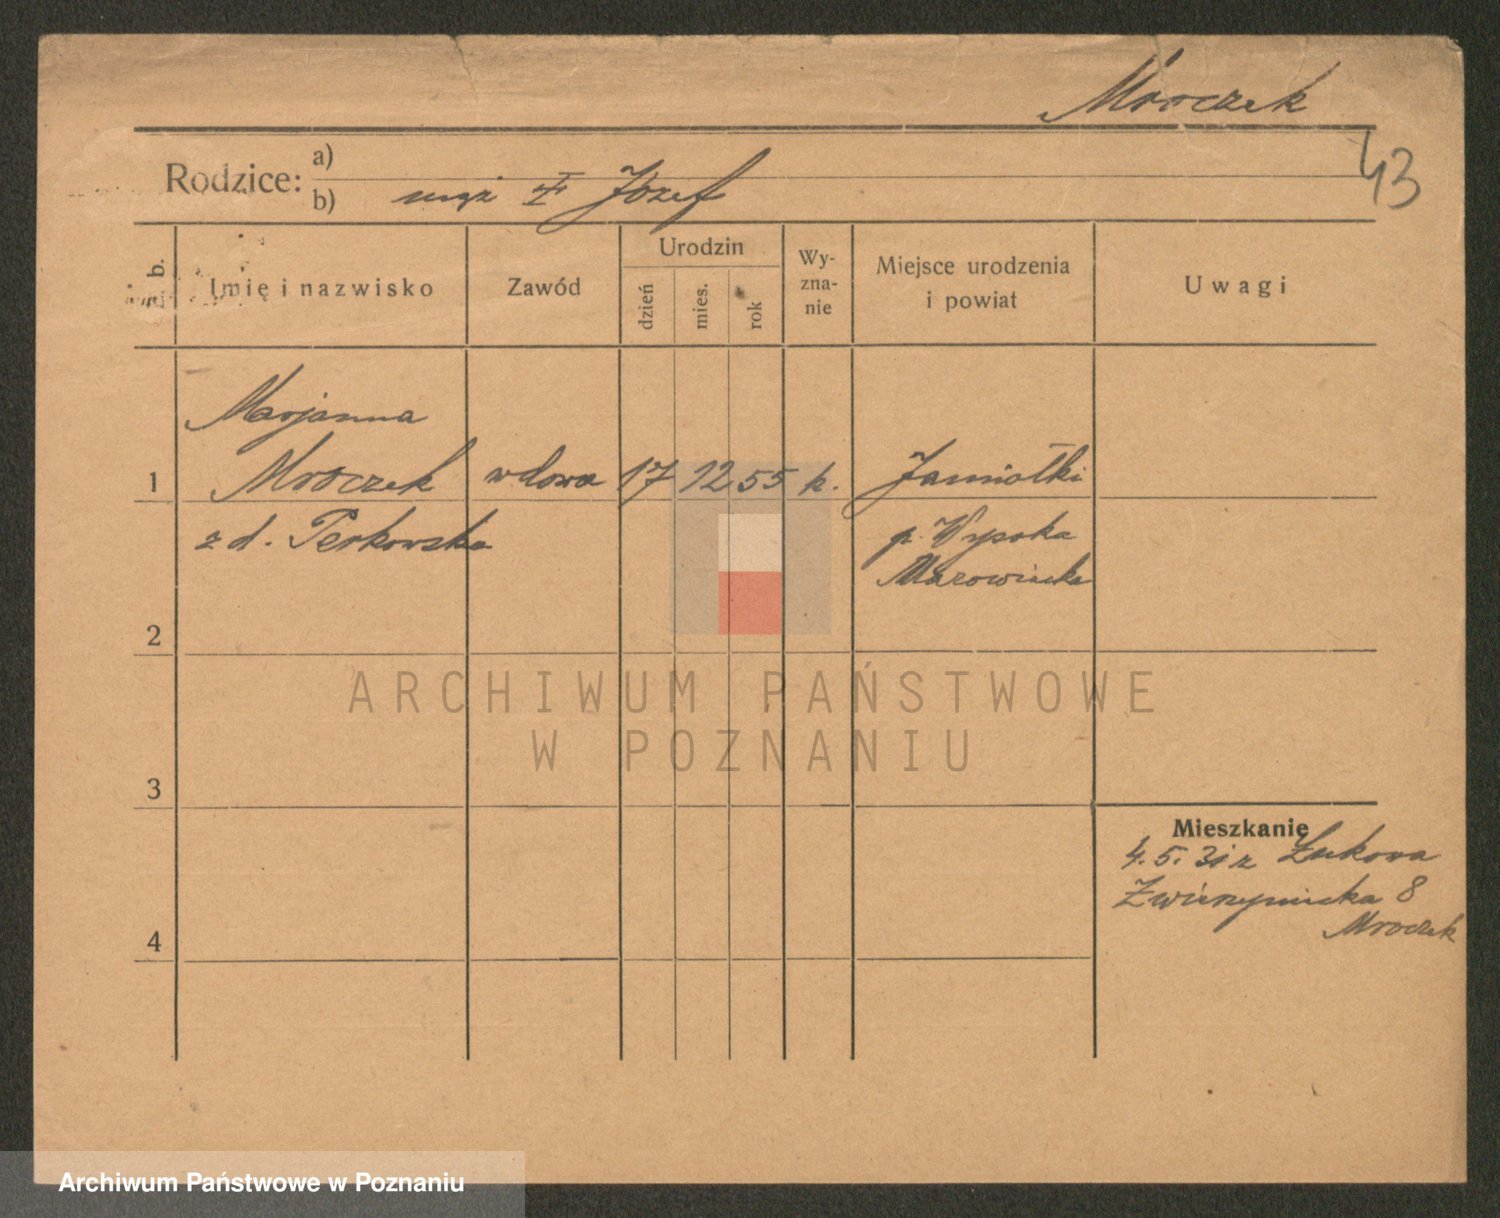 Mroczek
43
Rodzice: a)
b) mąż † Józef
b.
Imię i nazwisko
Zawód
Urodzin
dzień
mies.
rok
Wy-
zna-
nie
Miejsce urodzenia
i powiat
Uwagi
Marjanna
1 Mroczek wdowa 17 12 55 k. Jamiołki
z d. Perkowska p. Wysoka
Mazowiecka
2
ARCHIWUM PAŃSTWOWE
W POZNANIU
3
Mieszkanie
4. 5. 31 z Łukowa
Zwierzyniecka 8
Mroczek
4
Archiwum Państwowe w Poznaniu